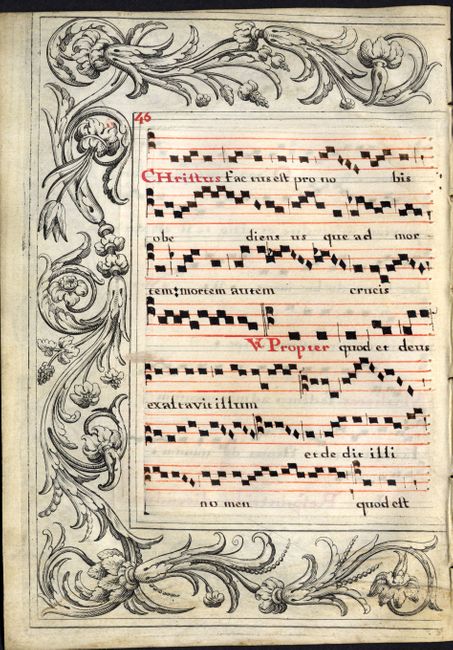 46
CHristus factus est pro no bis
obe diens us que ad mor
tem: mortem autem crucis
V. Propter quod et deus
exaltavit illum
et de dit illi
no men quod est